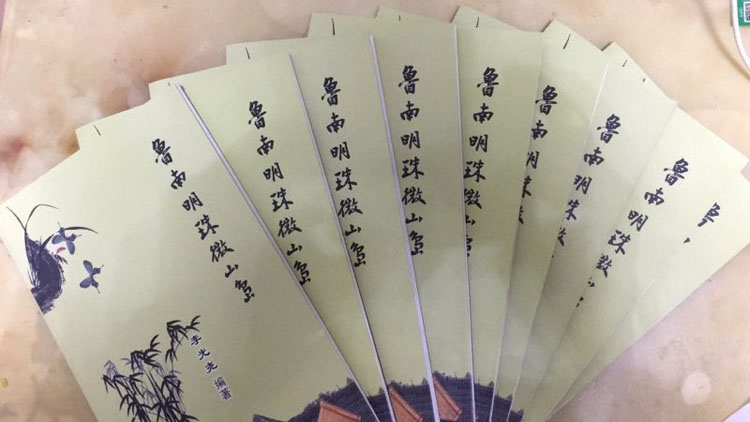 鲁南明珠微山岛
李光 编著
鲁南明珠微山岛
鲁南明珠微山岛
鲁南明珠微山岛
鲁南明珠微
鲁南明珠
鲁南明珠
鲁南明珠微